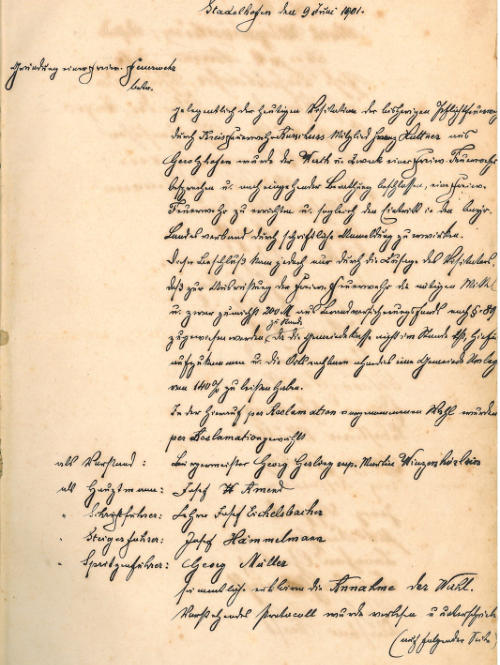 Stadelhofen den 9 Juni 1901.
Gründung einer freiw. Feuerwehr
betr.
Gelegentlich der heutigen Visitation der bisherigen Pflichtfeuerw
durch Kreisfeuerwehr Mitglied Franz Küttner aus
Gerolzhofen wurde der Werth u. Zweck einer Freiw. Feuerwehr
besprochen u. nach eingehender Berathung beschlossen, eine freiw.
Feuerwehr zu errichten u. sogleich den Eintritt in den bayr.
Landesverband durch schriftliche Anmeldung zu erwirken.
Dieser Beschluß kam jedoch nur durch die Zusage des Visitators,
daß zur Ausrüstung der freiw. Feuerwehr die nötigen Mittel
u. zwar zunächst 200 M aus Brandversicherungsfonds nach §. 89
zugewiesen werden, da die Gemeindekasse nicht im Stande ist, hiefür
zu Stande
aufzukommen u. die Ortsnachbarn ohnedies eine Gemeinde Umlage
von 140 % zu leisten haben.
In der hierauf per Acclamation vorgenommenen Wahl wurden
per Acclamation gewählt
als Vorstand: Bürgermeister Georg Martin
als Hauptmann: Josef Amend
" Schriftführer: Lehrer Josef Eichelsbacher
" Steigerführer: Josef Hämmelmann
" Spritzenführer: Georg Müller
sämmtliche erklären die Annahme der Wahl.
Vorstehendes Protocoll wurde verlesen u unterschrieb
(auf folgender Seite)